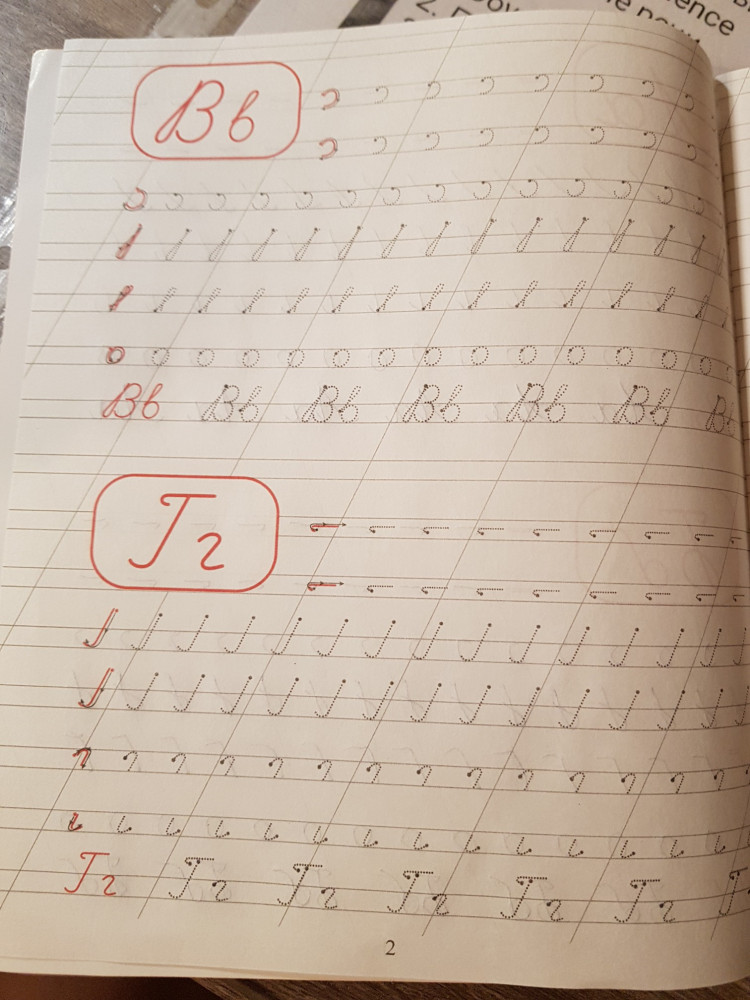 ence
2.
Вв
Вв Вв Вв Вв Вв Вв Вв
Гг
Гг Гг Гг Гг Гг Гг Г
2